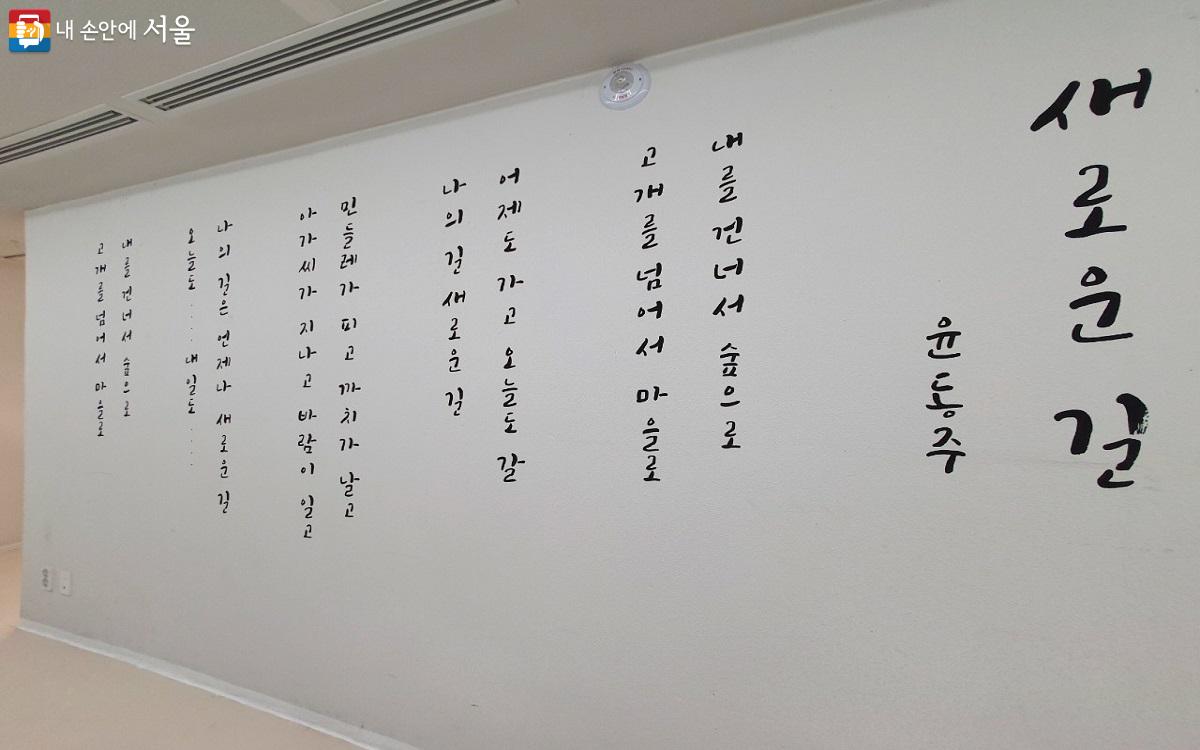 내 손안에 서울
새로운 길
윤동주
내를 건너서 숲으로
고개를 넘어서 마을로
어제도 가고 오늘도 갈
나의 길 새로운 길
민들레가 피고 까치가 날고
아가씨가 지나고 바람이 일고
나의 길은 언제나 새로운 길
오늘도..... 내일도.....
내를 건너서 숲으로
고개를 넘어서 마을로